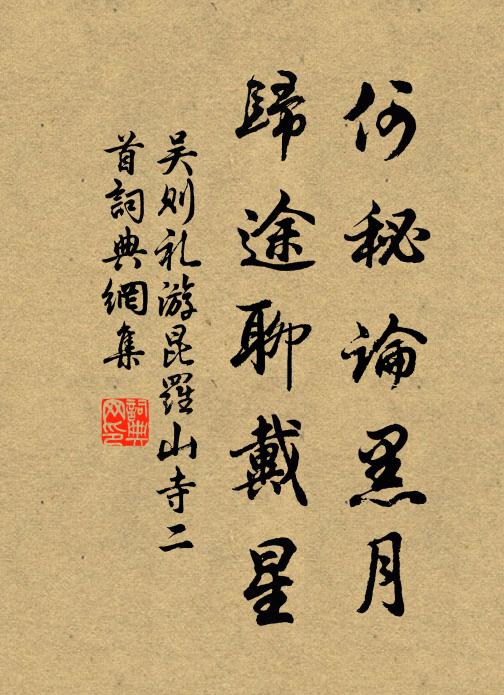 何秘論黑月
歸途聊戴星
吴则礼游昆羅山寺二
首詞典網集
詞典网印